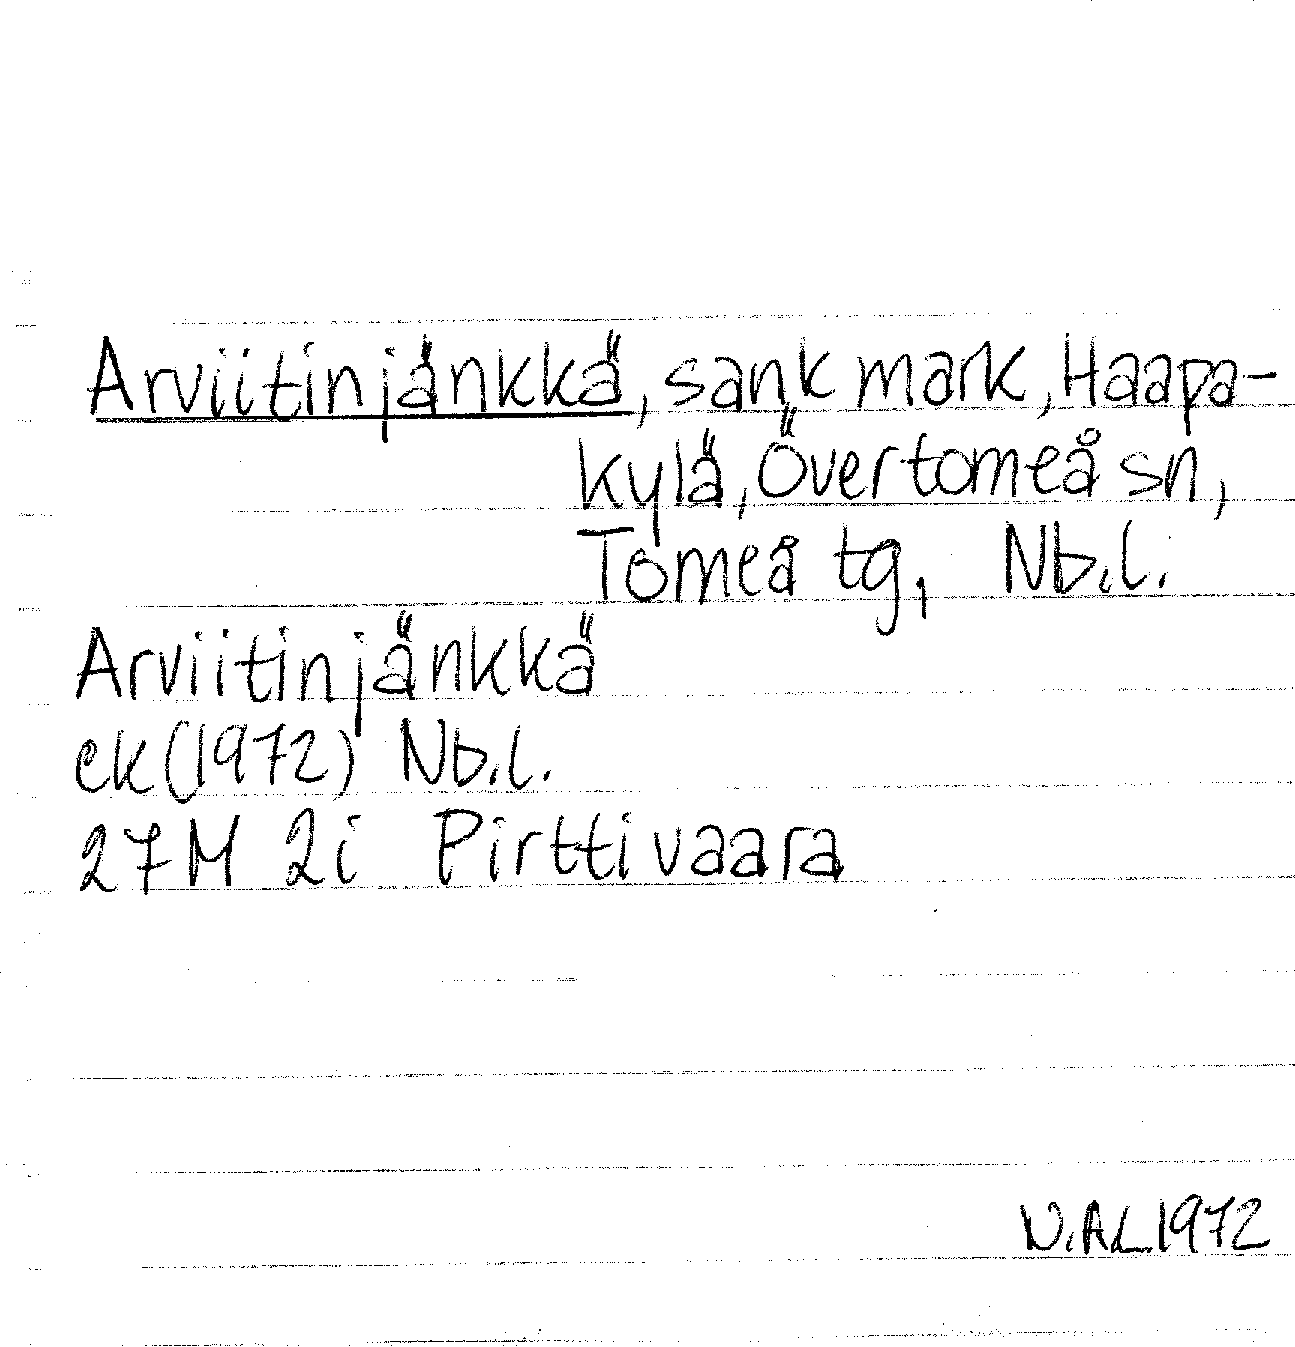 Arviitinjänkkä, sank mark, Haapa-
kylä, Övertorneå sn,
Torneå tg, Nb.l.
Arviitinjänkkä
ek (1972) Nb.l.
27M 2i Pirttivaara
N.A.L. 1972